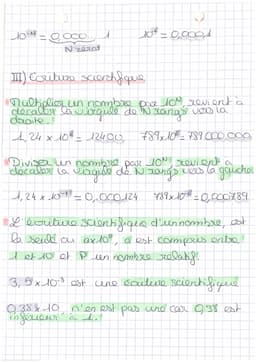 = 0,000...1
= 0,0001
N zéros
III) Ecriture scientifique
Multiplier un nombre par 10ᴺ revient à
décaler la virgule de N rangs vers la
droite.
1,24 x 10⁴ = 12400
= 789 000 000
Diviser un nombre par 10ᴺ revient à
décaler la virgule de N rangs vers la gauche
= 0,000124
= 0,000789
L'écriture scientifique d'un nombre, est
la seule ou
a est compris entre
1 et 10 et P un nombre relatif.
est une écriture scientifique
0,38 x 10
n'en est pas une car 0,38 est
inférieur à 1.